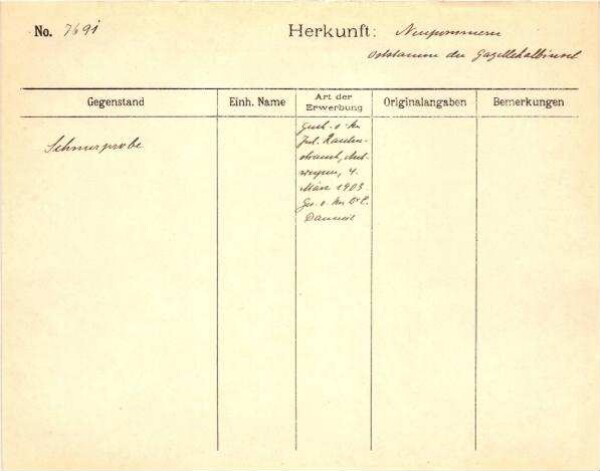 No. 7691
Herkunft: Neupommern
Oststamm der Gazellehalbinsel
Gegenstand
Einh. Name
Art der Erwerbung
Originalangaben
Bemerkungen
Schnurprobe
Gesch. v. Hn.
Jul. Rauten-
strauch, Ant-
werpen, 4.
März 1903.
Ges. v. Hn. Dr. C.
Danneil